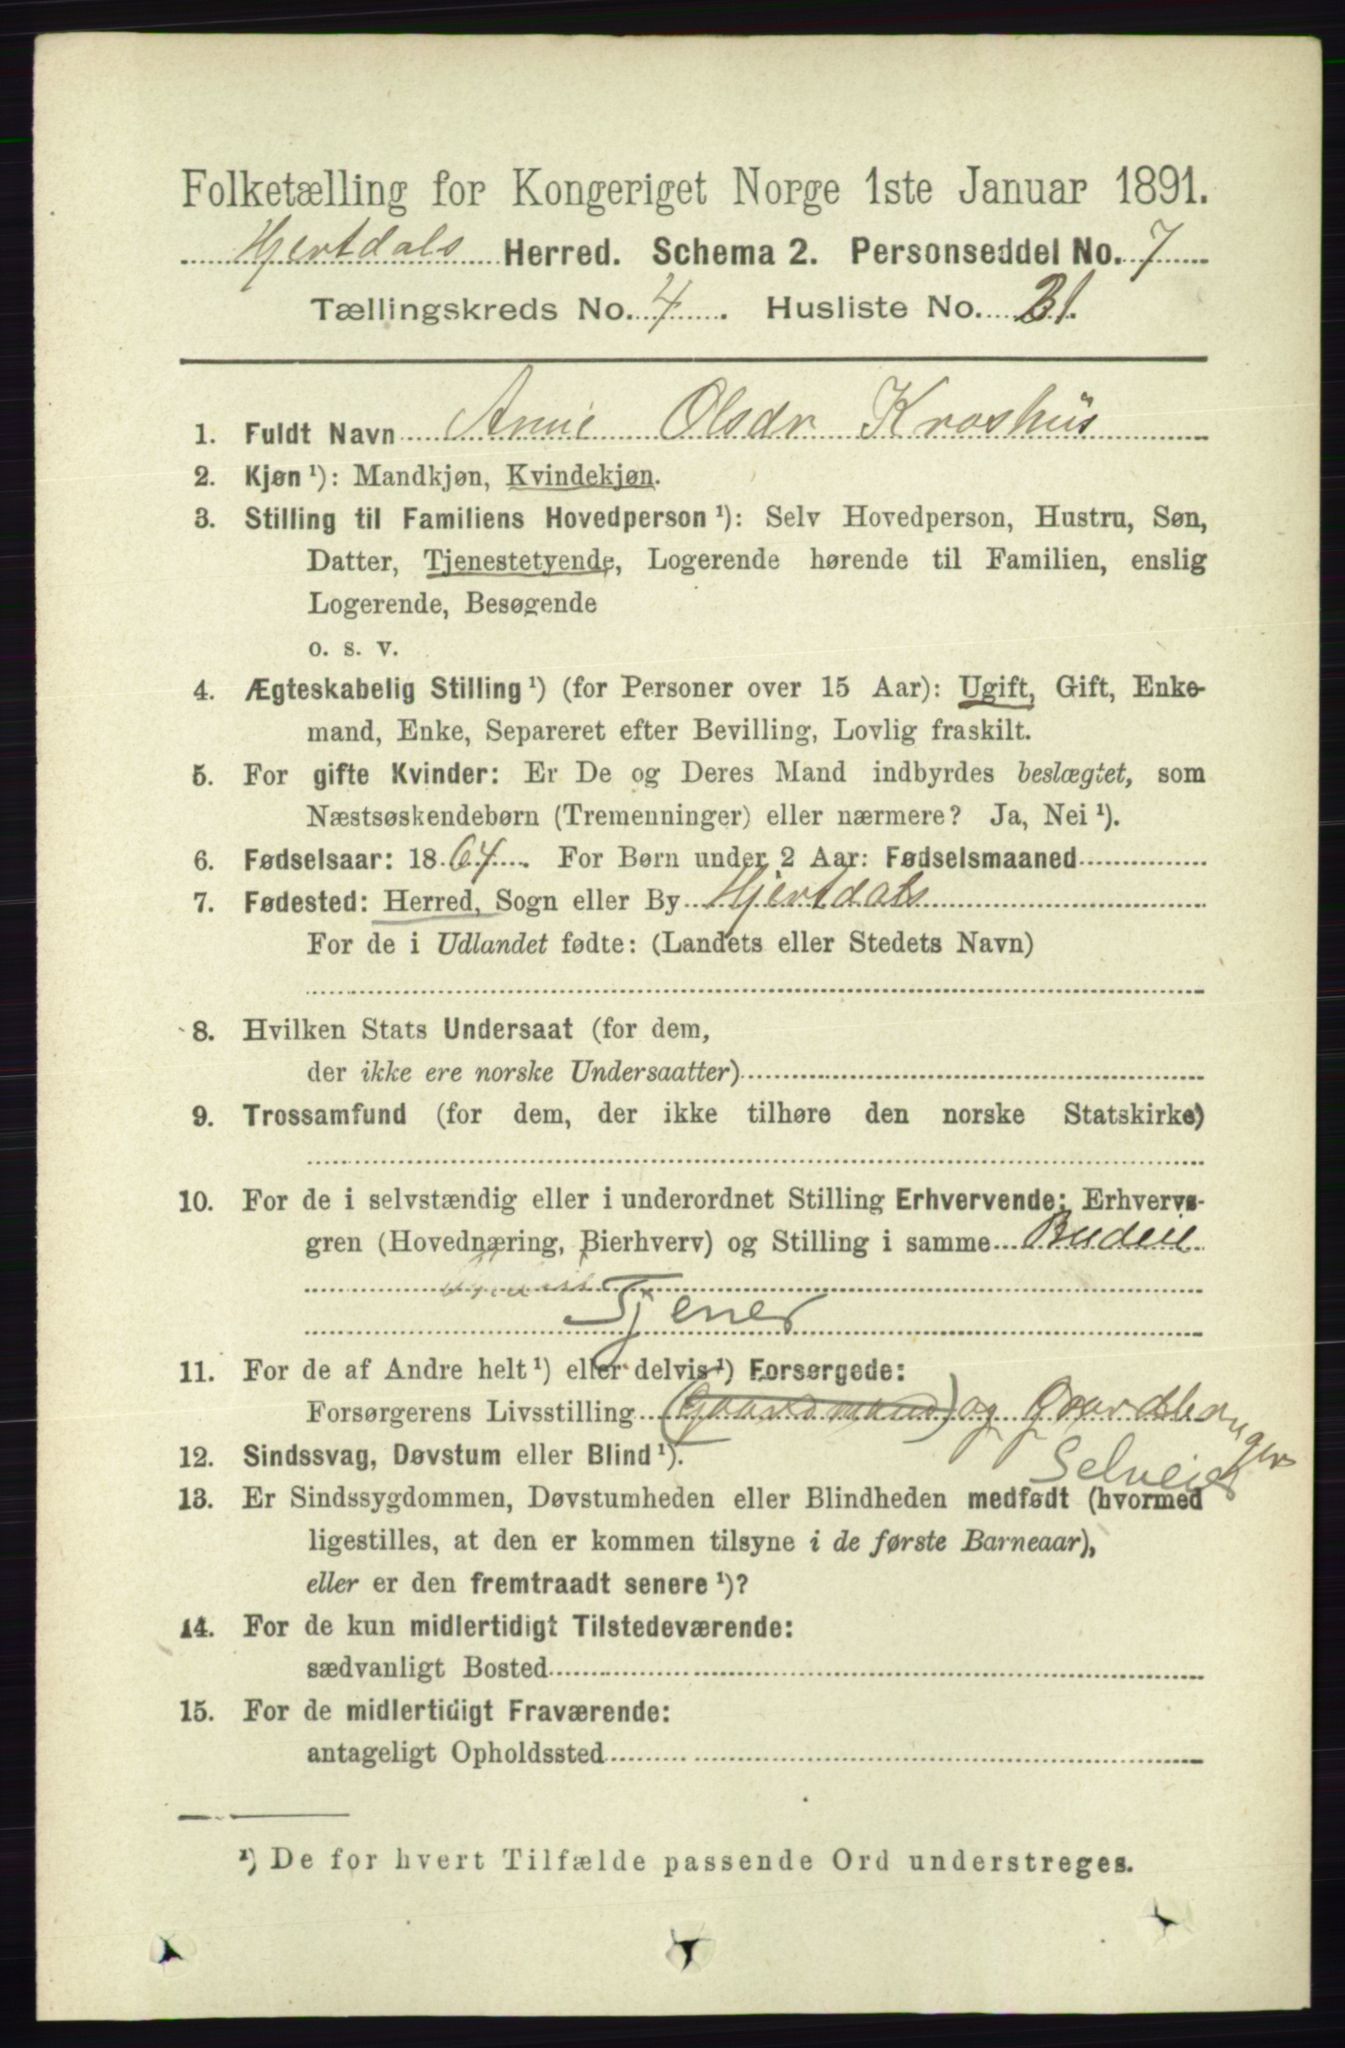 Folketælling for Kongeriget Norge 1ste Januar 1891.
Hjertdals Herred. Schema 2. Personseddel No. 7
Tællingskreds No. 4. Husliste No. 31.
1. Fuldt Navn Anne Olsdr Kroshus
2. Kjøn ¹): Mandkjøn, Kvindekjøn.
3. Stilling til Familiens Hovedperson ¹): Selv Hovedperson, Hustru, Søn,
Datter, Tjenestetyende, Logerende hørende til Familien, enslig
Logerende, Besøgende
o. s. v.
4. Ægteskabelig Stilling ¹) (for Personer over 15 Aar): Ugift, Gift, Enke-
mand, Enke, Separeret efter Bevilling, Lovlig fraskilt.
5. For gifte Kvinder: Er De og Deres Mand indbyrdes beslægtet, som
Næstsøskendebørn (Tremenninger) eller nærmere? Ja, Nei ¹).
6. Fødselsaar: 1864. For Børn under 2 Aar: Fødselsmaaned
7. Fødested: Herred, Sogn eller By Hjertdals
For de i Udlandet fødte: (Landets eller Stedets Navn)
8. Hvilken Stats Undersaat (for dem,
der ikke ere norske Undersaatter)
9. Trossamfund (for dem, der ikke tilhøre den norske Statskirke)
10. For de i selvstændig eller i underordnet Stilling Erhvervende: Erhvervs-
gren (Hovednæring, Bierhverv) og Stilling i samme Budeie
Tjener
11. For de af Andre helt ¹) eller delvis ¹) Forsørgede:
Forsørgerens Livsstilling (Gaardmand) og Gaardbruger
Selveier
12. Sindssvag, Døvstum eller Blind ¹).
13. Er Sindssygdommen, Døvstumheden eller Blindheden medfødt (hvormed
ligestilles, at den er kommen tilsyne i de første Barneaar),
eller er den fremtraadt senere ¹)?
14. For de kun midlertidigt Tilstedeværende:
sædvanligt Bosted
15. For de midlertidigt Fraværende:
antageligt Opholdssted
¹) De for hvert Tilfælde passende Ord understreges.